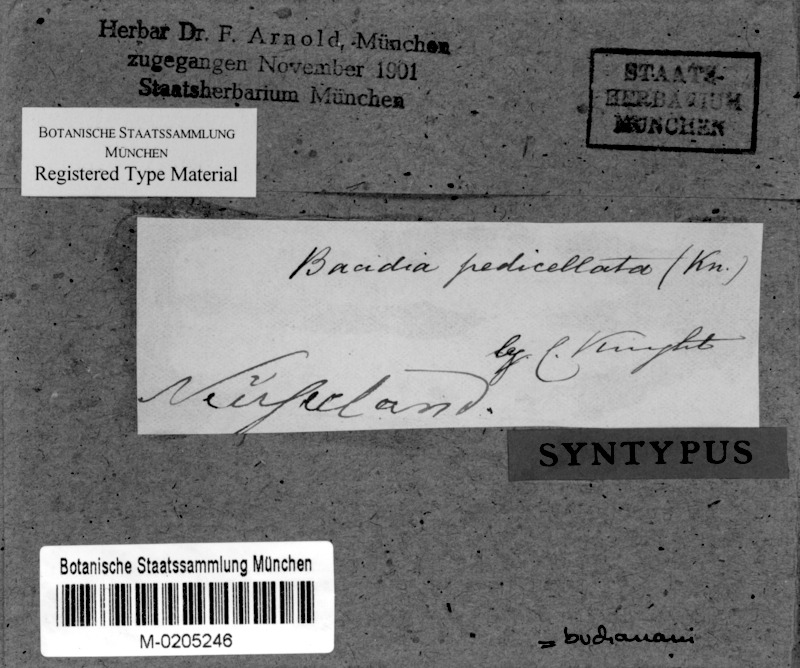 Herbar Dr. F. Arnold, München
zugegangen November 1901
Staatsherbarium München
STAATS-
HERBARIUM
MÜNCHEN
BOTANISCHE STAATSSAMMLUNG
MÜNCHEN
Registered Type Material
Bacidia pedicellata (Kn.)
leg. C. Knight
Neuseeland.
SYNTYPUS
Botanische Staatssammlung München
M-0205246
= buchanani